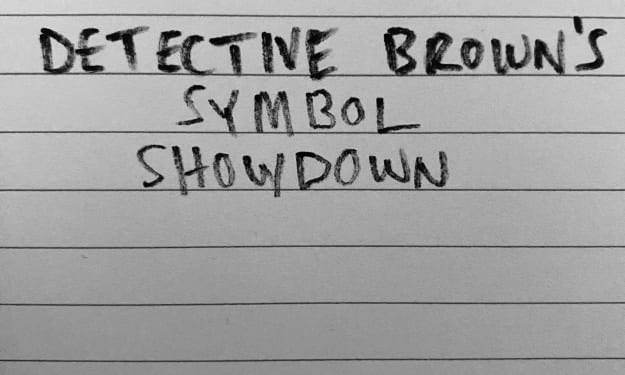 DETECTIVE BROWN'S
SYMBOL
SHOWDOWN